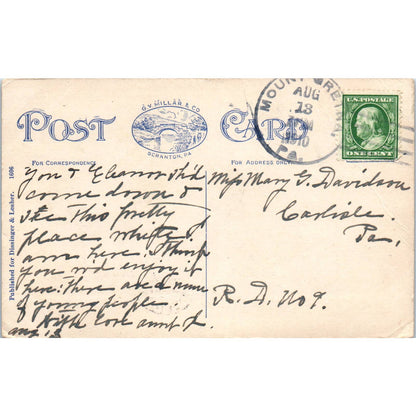 G.V. MILLAR & CO
SCRANTON, PA.
POST CARD
FOR CORRESPONDENCE
FOR ADDRESS ONLY.
Published for Dissinger & Lesher. 1606
MOUNT GRE
AUG
13
1910
PA.
U.S. POSTAGE
ONE CENT
You & Eleanor sh'd
come down &
see this pretty
place while I
am here. I think
you w'd enjoy it
here: there are a
of young people.
With love aunt J.
Aug. 13
Miss Mary G. Davidson
Carlisle
Pa.
R.D. No 9.